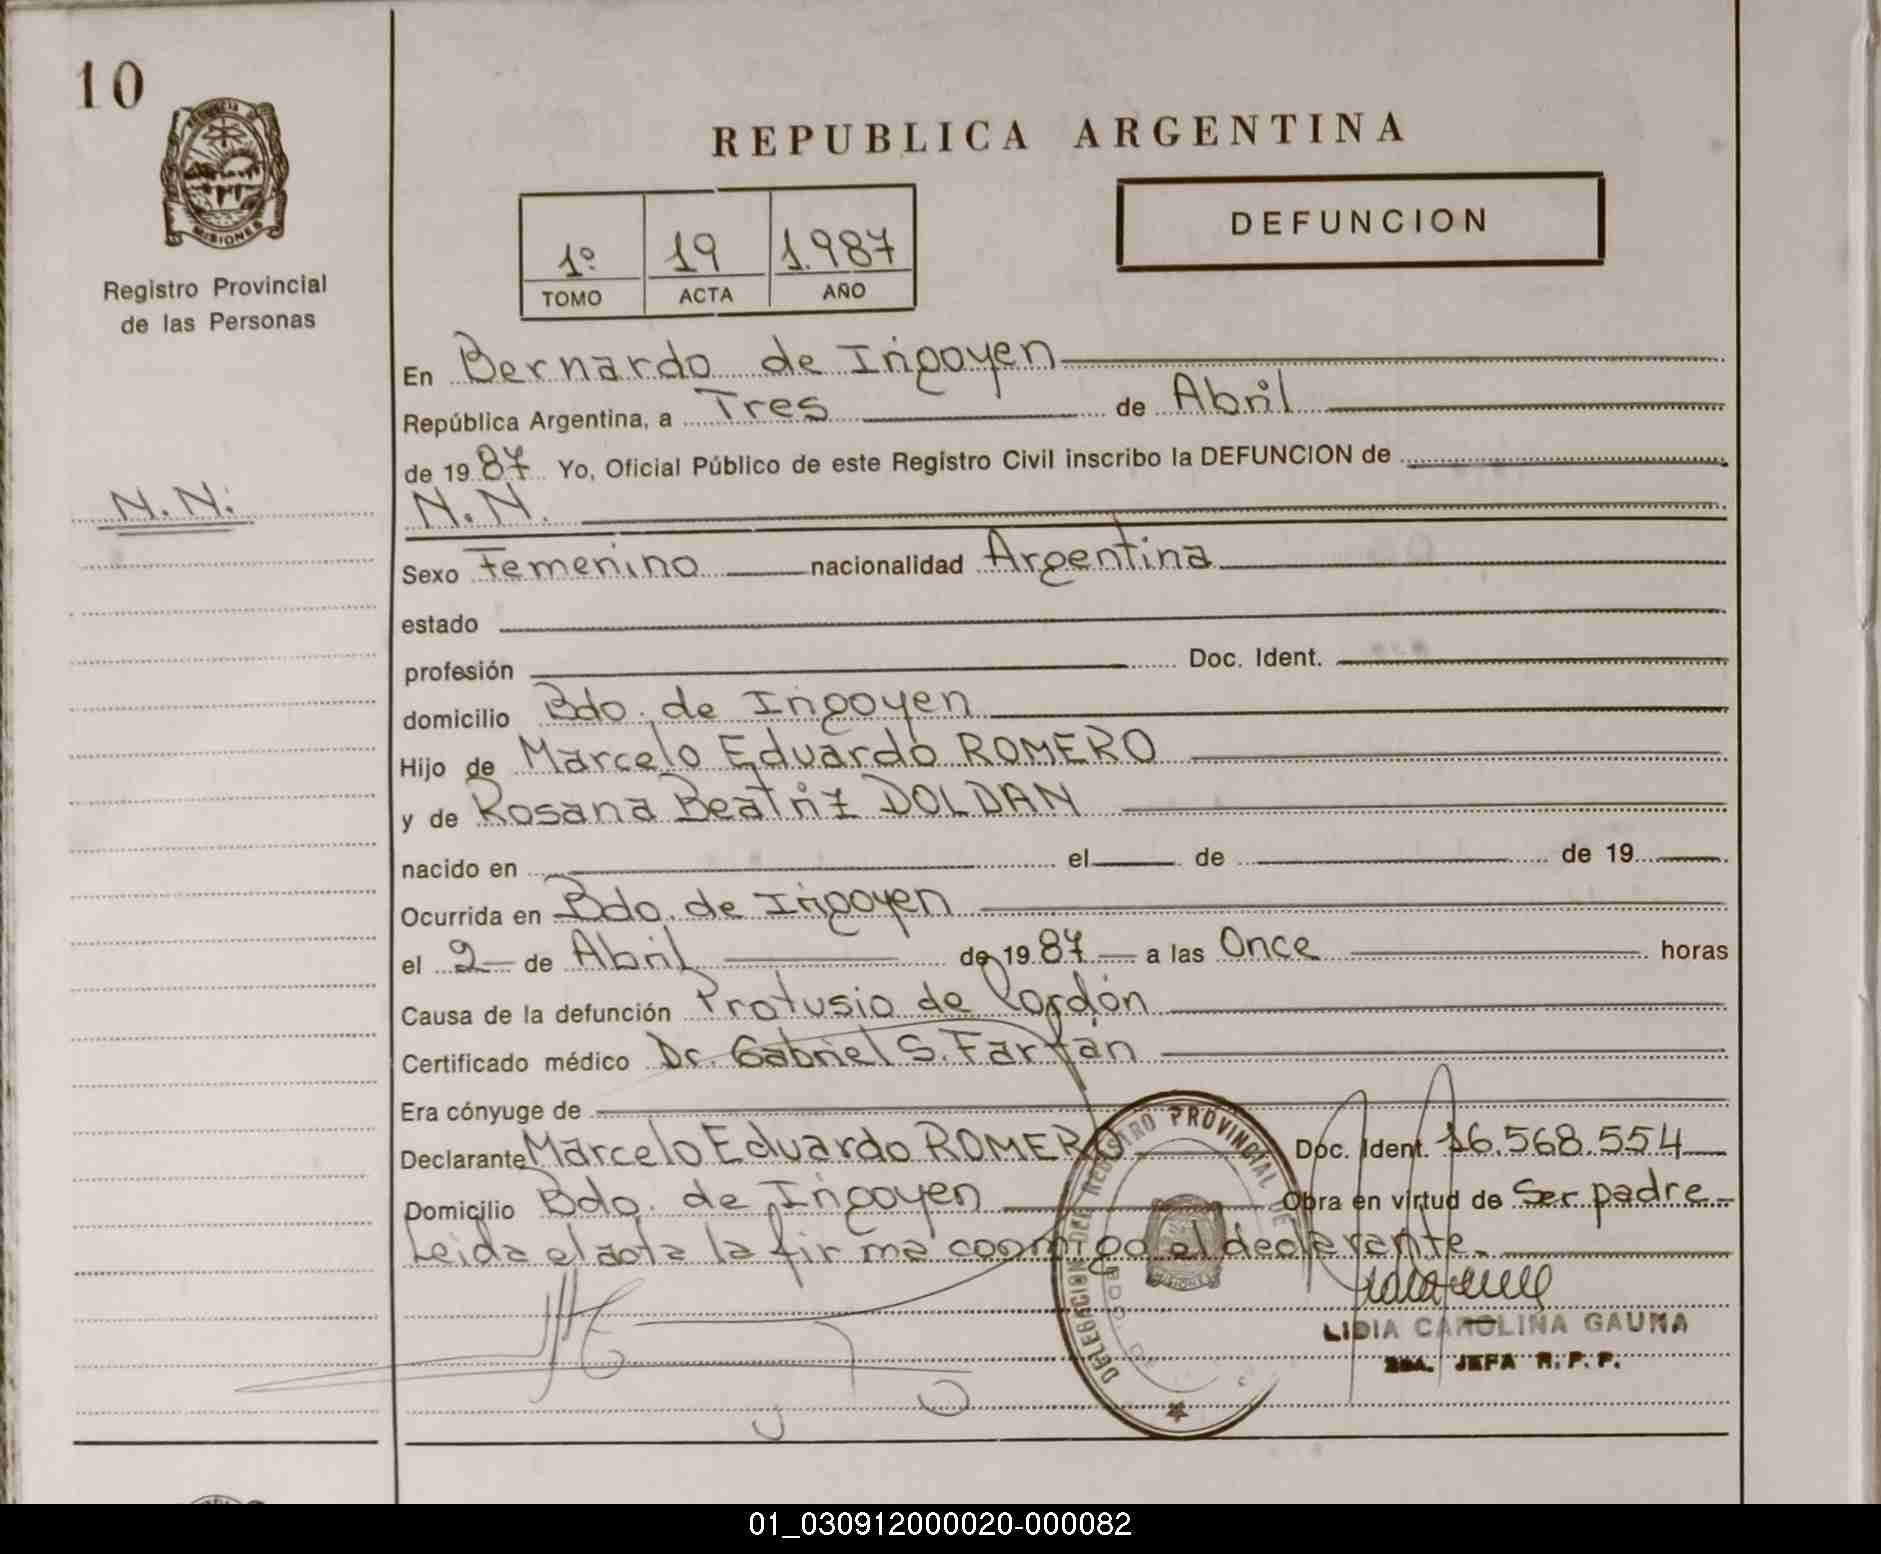 10
PROVINCIA DE
MISIONES
Registro Provincial
de las Personas
REPUBLICA ARGENTINA
DEFUNCION
1º 19 1.987
TOMO ACTA AÑO
En Bernardo de Irigoyen
República Argentina, a Tres de Abril
de 19 87 Yo, Oficial Público de este Registro Civil inscribo la DEFUNCION de
N.N.
N.N.
Sexo Femenino nacionalidad Argentina
estado
profesión Doc. Ident.
domicilio Bdo. de Irigoyen
Hijo de Marcelo Eduardo ROMERO
y de Rosana Beatriz DOLDAN
nacido en el de de 19
Ocurrida en Bdo. de Irigoyen
el 2 de Abril de 19 87 a las Once horas
Causa de la defunción Protusio de Cordón
Certificado médico Dr. Gabriel S. Farfán
Era cónyuge de
Declarante Marcelo Eduardo ROMERO Doc. Ident. 16.568.554
Domicilio Bdo. de Irigoyen Obra en virtud de Ser padre
Leida el acta la firma conmigo el declarante.
DELEGACION DEL REGISTRO PROVINCIAL DE
BDO. DE
LIDIA CAROLINA GAUNA
JEFA R.P.P.
01_030912000020-000082